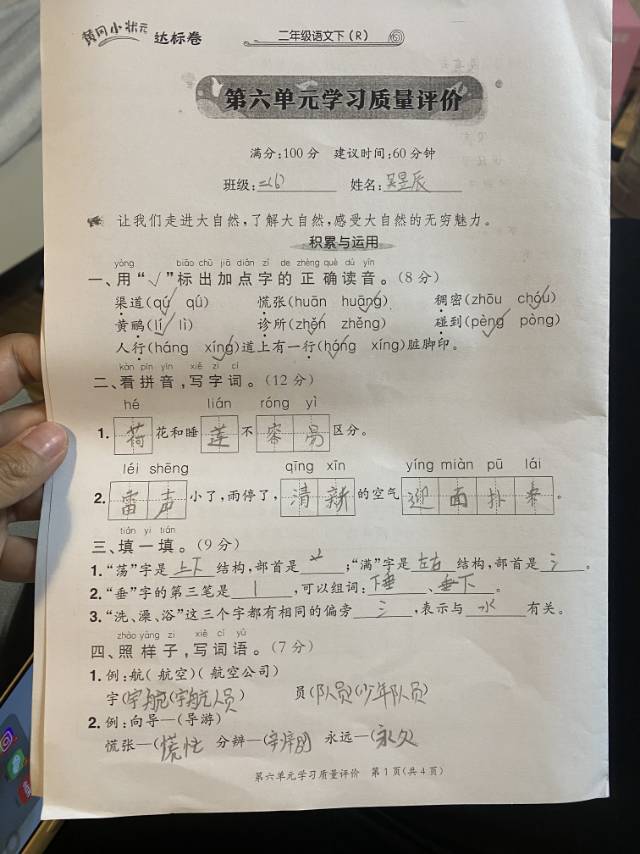 黄冈小状元 达标卷 二年级语文下(R)
第六单元学习质量评价
满分:100分 建议时间:60分钟
班级:二(6) 姓名:吴昱辰
让我们走进大自然,了解大自然,感受大自然的无穷魅力。
积累与运用
yòng biāo chū jiā diǎn zì de zhèng què dú yīn
一、用“√”标出加点字的正确读音。(8分)
渠道(qú√ qǔ) 慌张(huān huāng√) 稠密(zhōu chóu√)
黄鹂(lí√ lì) 诊所(zhěn√ zhěng) 碰到(pèng√ pòng)
人行(háng xíng√)道上有一行(háng√ xíng)脏脚印。
kàn pīn yīn xiě zì cí
二、看拼音,写字词。(12分)
hé lián róng yì
1. 荷花和睡莲不容易区分。
léi shēng qīng xīn yíng miàn pū lái
2. 雷声小了,雨停了,清新的空气迎面扑来。
tián yi tián
三、填一填。(9分)
1.“荡”字是上下结构,部首是艹;“满”字是左右结构,部首是氵。
2.“垂”字的第三笔是丨,可以组词:下垂、垂下。
3.“洗、澡、浴”这三个字都有相同的偏旁氵,表示与水有关。
zhào yàng zi xiě cí yǔ
四、照样子,写词语。(7分)
1.例:航(航空)(航空公司)
宇(宇航)(宇航人员) 员(队员)(少年队员)
2.例:向导—(导游)
慌张—(慌忙 分辨—( 别) 永远—(永久
第六单元学习质量评价 第1页(共4页)